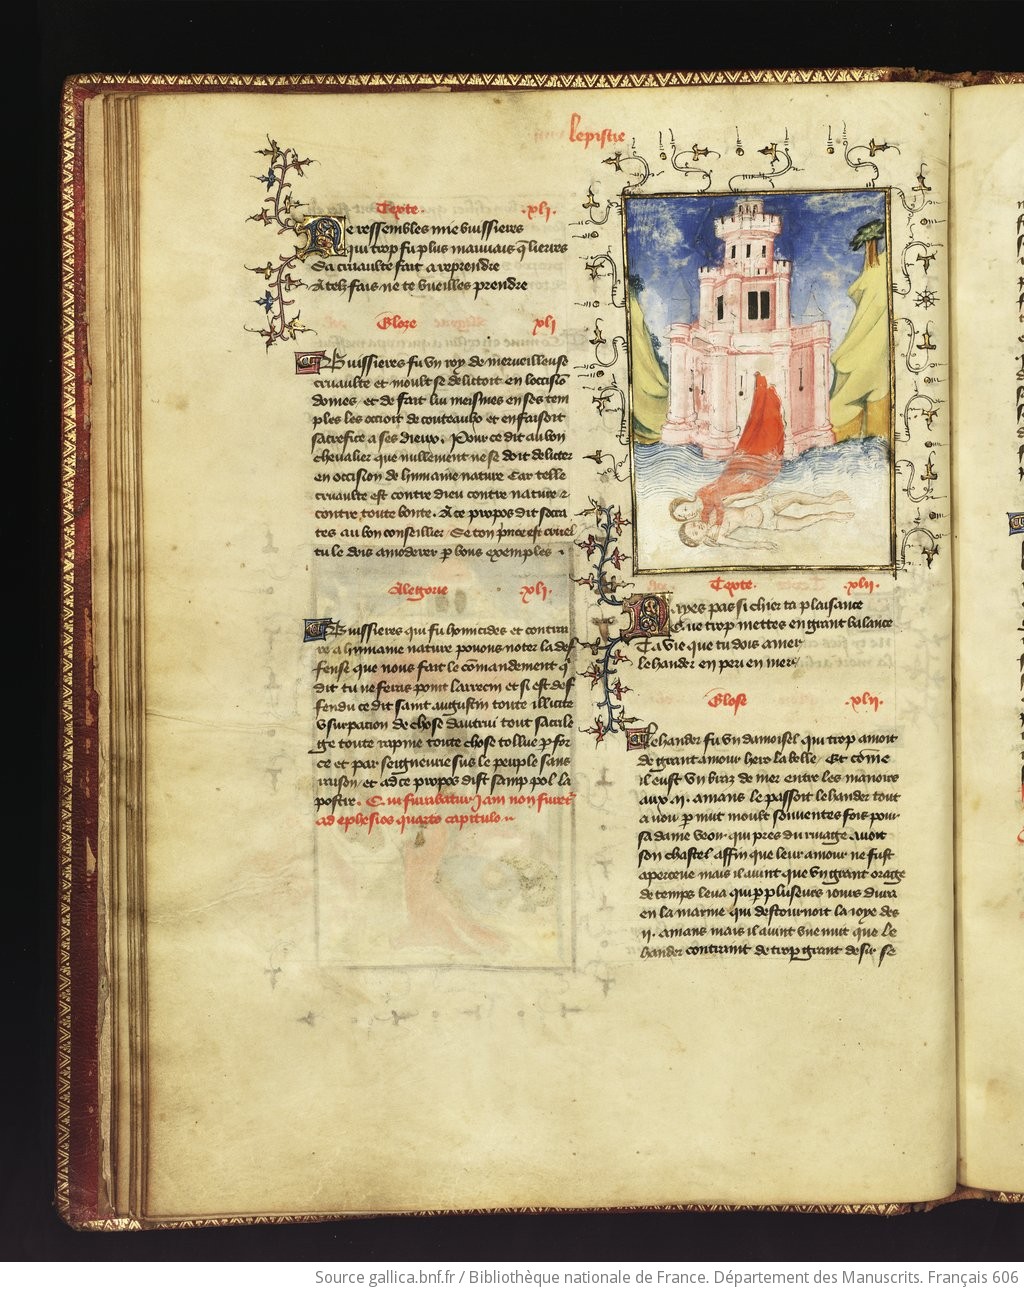 Lepistre
Texte. .xli.
Ne ressembles mie buissieres
qui trop fu plus mauuais q lierres
Sa cruaulte fait a reprendre
A telz fais ne te vueilles prendre
Glose xli
Buissieres fu vn roy de merueilleuse
cruaulte et moult se delittoit en loccisiō
domes. et de fait lui meismes en ses tem
ples les occioit de couteaulx et en faisoit
sacrefice a ses dieux. Pour ce dit au bon
cheualier que nullement ne se doit deliter
en occision de humaine nature Car telle
cruaulte est contre dieu contre nature &
contre toute bonte. A ce propos dit socra
tes au bon conseillier. Se ton pnce est cruel
tu le dois amoderer p bons exemples .
Alegorie .xli.
Buissieres qui fu homicides et contrai
re a humaine nature pouons noter la def
fense que nous fait le cōmandement q
dit tu ne feras point larrecin et si est def
fendu ce dit saint augustin toute illicite
vsurpacion de chose dautrui tout sacrile
ge toute rapine toute chose tollue p for
ce et par seigneurie sus le peuple sans
raison. et a ce propos dist saint pol la
postre. Qui furabatur iam non furet
ad ephesios quarto capitulo
Texte. .xlii.
Nayes pas si chier ta plaisance
Que trop mettes en grant balance
Ta vie que tu dois amer
lehander en peri en mer
Glose .xlii.
Lehander fu vn damoisel qui trop amoit
de grant amour hero la belle. Et cōme
il eust vn braz de mer entre les manoirs
aux .ii. amans le passoit lehander tout
a nou p nuit moult souuentes fois pour
sa dame veoir qui pres du riuage auoit
son chastel affin que leur amour ne fust
aperceue mais il auint que vn grant orage
de temps leua qui p pluseurs iours dura
en la marine qui destournoit la ioye des
ii. amans mais il auint vne nuit que le
hander contraint de trop grant desir se
Source gallica.bnf.fr / Bibliothèque nationale de France. Département des Manuscrits. Français 606